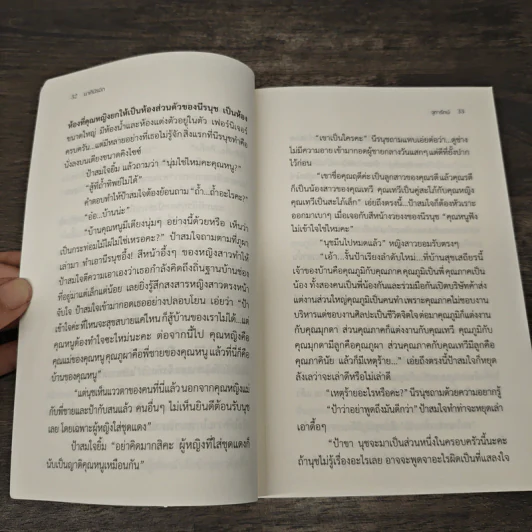 32 
ห้องที่คุณหญิงยกให้เป็นห้องส่วนตัวของนีรนุช เป็นห้อง
ขนาดใหญ่ มีห้องน้ำและห้องแต่งตัวอยู่ในตัว เฟอร์นิเจอร์
ครบครัน...แต่มีหลายอย่างที่เธอไม่รู้จัก สิ่งแรกที่นีรนุชทำคือ
นั่งลงบนเตียงขนาดคิงไซซ์
ป้าสมใจยิ้ม แล้วถามว่า “นุ่มใช่ไหมคะคุณหนู?”
“สู้ที่ถ้ำทิพย์ไม่ได้”
คำตอบทำให้ป้าสมใจต้องย้อนถาม “ถ้ำ...ถ้ำอะไรคะ?”
“อ๋อ...บ้านน่ะ”
“บ้านคุณหนูมีเตียงนุ่มๆ อย่างนี้ด้วยหรือ เห็นว่า
เป็นกระท่อมไม้ไผ่ไม่ใช่เหรอคะ?” ป้าสมใจถามตามที่ภูผา
เล่ามา ทำเอานีรนุชอึ้ง! สีหน้าอึ้งๆ ของหญิงสาวทำให้
ป้าสมใจตีความเอาเองว่าเธอกำลังคิดถึงถิ่นฐานบ้านช่อง
ที่อยู่มาแต่เล็กแต่น้อย เลยยิ่งรู้สึกสงสารหญิงสาวตรงหน้า
จับใจ ป้าสมใจเข้ามากอดเธออย่างปลอบโยน เอ่ยว่า “ป้า
เข้าใจค่ะที่ไหนจะสุขสบายแค่ไหน ก็สู้บ้านของเราไม่ได้...แต่
คุณหนูต้องทำใจซะใหม่นะคะ ต่อจากนี้ไป คุณหญิงคือ
คุณแม่ของคุณหนู คุณภูผาคือพี่ชายของคุณหนู แล้วที่นี่ก็คือ
บ้านของคุณหนู”
“แต่นุชเห็นแววตาของคนที่นี่แล้ว นอกจากคุณหญิงแม่
กับพี่ชายและป้ากับสนแล้ว คนอื่นๆ ไม่เห็นยินดีต้อนรับนุช
เลย โดยเฉพาะผู้หญิงใส่ชุดแดง”
ป้าสมใจยิ้ม “อย่าคิดมากสิคะ ผู้หญิงที่ใส่ชุดแดงก็
นับเป็นญาติคุณหนูเหมือนกัน”
33
“เขาเป็นใครคะ” นีรนุชถามแทบเอ่ยต่อว่า...ดูช่าง
ไม่มีความอาย เข้ามากอดผู้ชายกลางวันแสกๆ แต่ดีที่ยั้งปาก
ไว้ก่อน
“เขาชื่อคุณฤดีค่ะ เป็นลูกสาวของคุณรดี แล้วคุณรดี
ก็เป็นน้องสาวของคุณเทวี คุณเทวีเป็นคู่สะใภ้กับคุณหญิง
คุณเทวีเป็นสะใภ้เล็ก” เอ่ยถึงตรงนี้...ป้าสมใจก็ต้องหัวเราะ
ออกมาเบาๆ เมื่อเจอกับสีหน้างวยงงของนีรนุช “คุณหนูฟัง
ไม่เข้าใจใช่ไหมคะ”
“นุชมึนไปหมดแล้ว” หญิงสาวยอมรับตรงๆ
“เอ้า...งั้นป้าเรียงลำดับใหม่...ที่บ้านสุขเสถียรนี้
เจ้าของบ้านคือคุณภูมิกับคุณภาค คุณภูมิเป็นพี่ คุณภาคเป็น
น้อง ทั้งสองคนเป็นพี่น้องกันและร่วมมือกันเปิดบริษัทค้าส่ง
แต่งานส่วนใหญ่คุณภูมิเป็นคนทำ เพราะคุณภาคไม่ชอบงาน
บริหารแต่ชอบงานศิลปะเป็นชีวิตจิตใจ ต่อมาคุณภูมิก็แต่งงาน
กับคุณมุกดา ส่วนคุณภาคก็แต่งงานกับคุณเทวี คุณภูมิกับ
คุณมุกดามีลูกคือคุณภูผา ส่วนคุณภาคกับคุณเทวีมีลูกคือ
คุณภาคินัย แล้วก็มีเหตุร้าย...” เอ่ยถึงตรงนี้ป้าสมใจก็หยุด
ลังเลว่าจะเล่าดีหรือไม่เล่าดี
“เหตุร้ายอะไรหรือคะ?” นีรนุชถามด้วยความอยากรู้
“ป้าว่าอย่าพูดถึงมันดีกว่า” ป้าสมใจทำท่าจะหยุดเล่า
เอาดื้อๆ
“ป้าขา นุชจะมาเป็นส่วนหนึ่งในครอบครัวนี้นะคะ
ถ้านุชไม่รู้เรื่องอะไรเลย อาจจะพูดจาอะไรผิดเป็นที่แสลงใจ